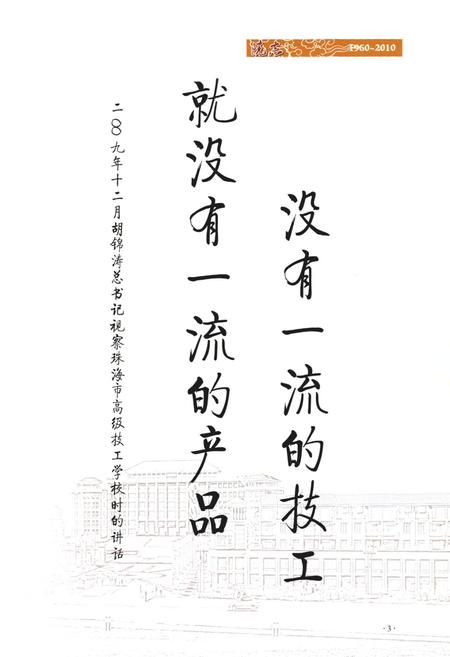 院志
1960-2010
没有一流的技工
就没有一流的产品
二〇〇九年十二月胡锦涛总书记视察珠海市高级技工学校时的讲话
·3·